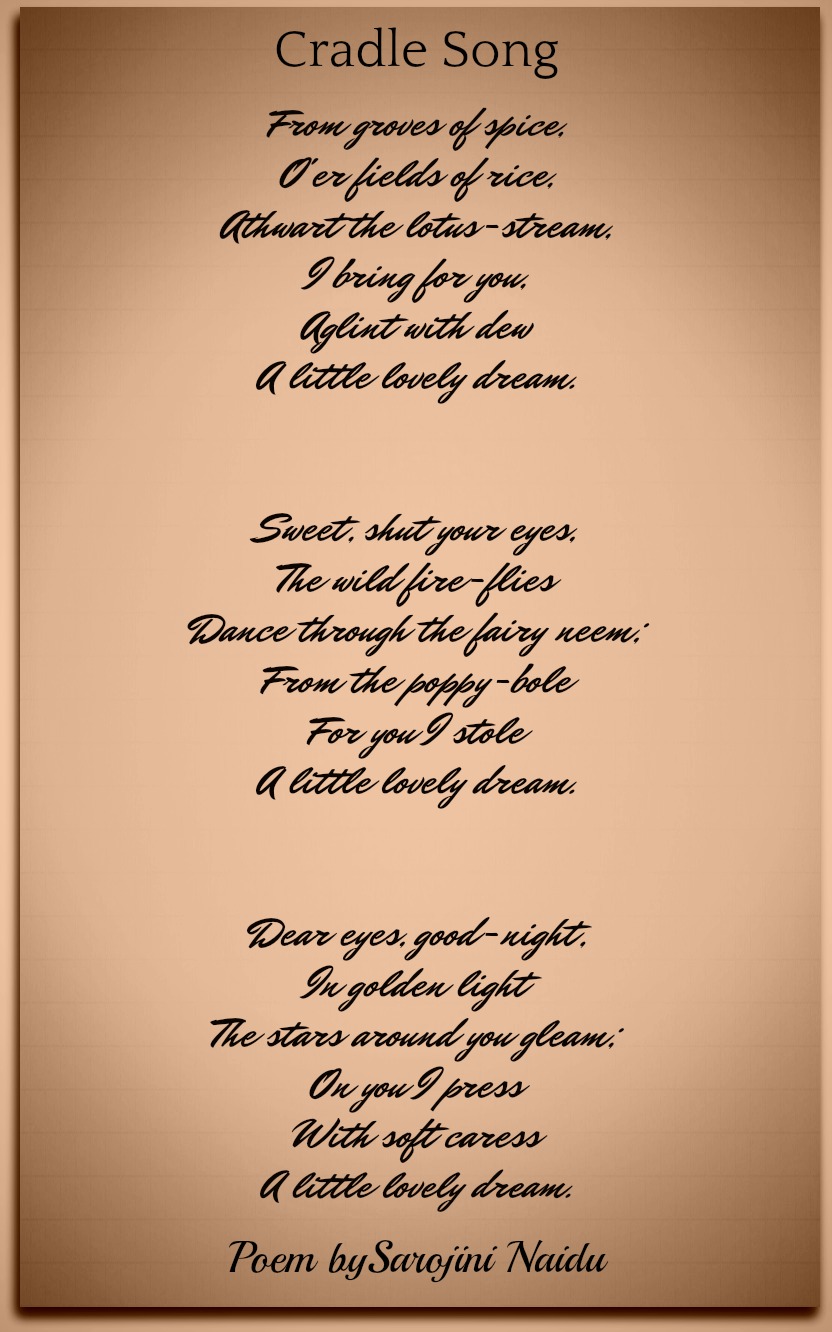 Cradle Song
From groves of spice,
O'er fields of rice,
Athwart the lotus-stream,
I bring for you,
Aglint with dew
A little lovely dream.
Sweet, shut your eyes,
The wild fire-flies
Dance through the fairy neem;
From the poppy-bole
For you I stole
A little lovely dream.
Dear eyes, good-night,
In golden light
The stars around you gleam;
On you I press
With soft caress
A little lovely dream.
Poem by Sarojini Naidu